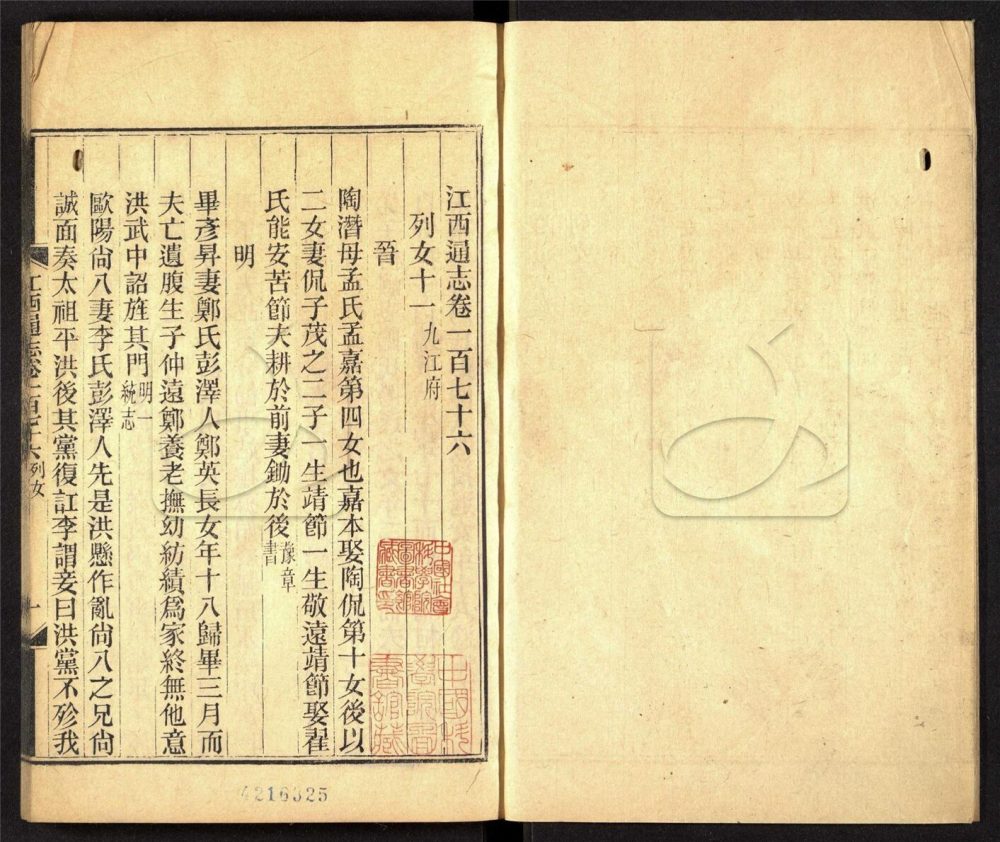 江西通志卷一百七十六
列女十一 九江府
晉
陶潛母孟氏孟嘉第四女也嘉本娶陶侃第十女後以
二女妻侃子茂之二子一生靖節一生敬遠靖節娶翟
氏能安苦節夫耕於前妻鋤於後豫章書
明
畢彥昇妻鄭氏彭澤人鄭英長女年十八歸畢三月而
夫亡遺腹生子仲遠鄭養老撫幼紡績爲家終無他意
洪武中詔旌其門明一統志
歐陽尙八妻李氏彭澤人先是洪懸作亂尙八之兄尙
誠面奏太祖平洪後其黨復訌李謂妾曰洪黨不殄我
江西通志卷一百七十六 列女
一
中國社會科學院圖書館藏書印
中國科學院圖書館藏
4216325